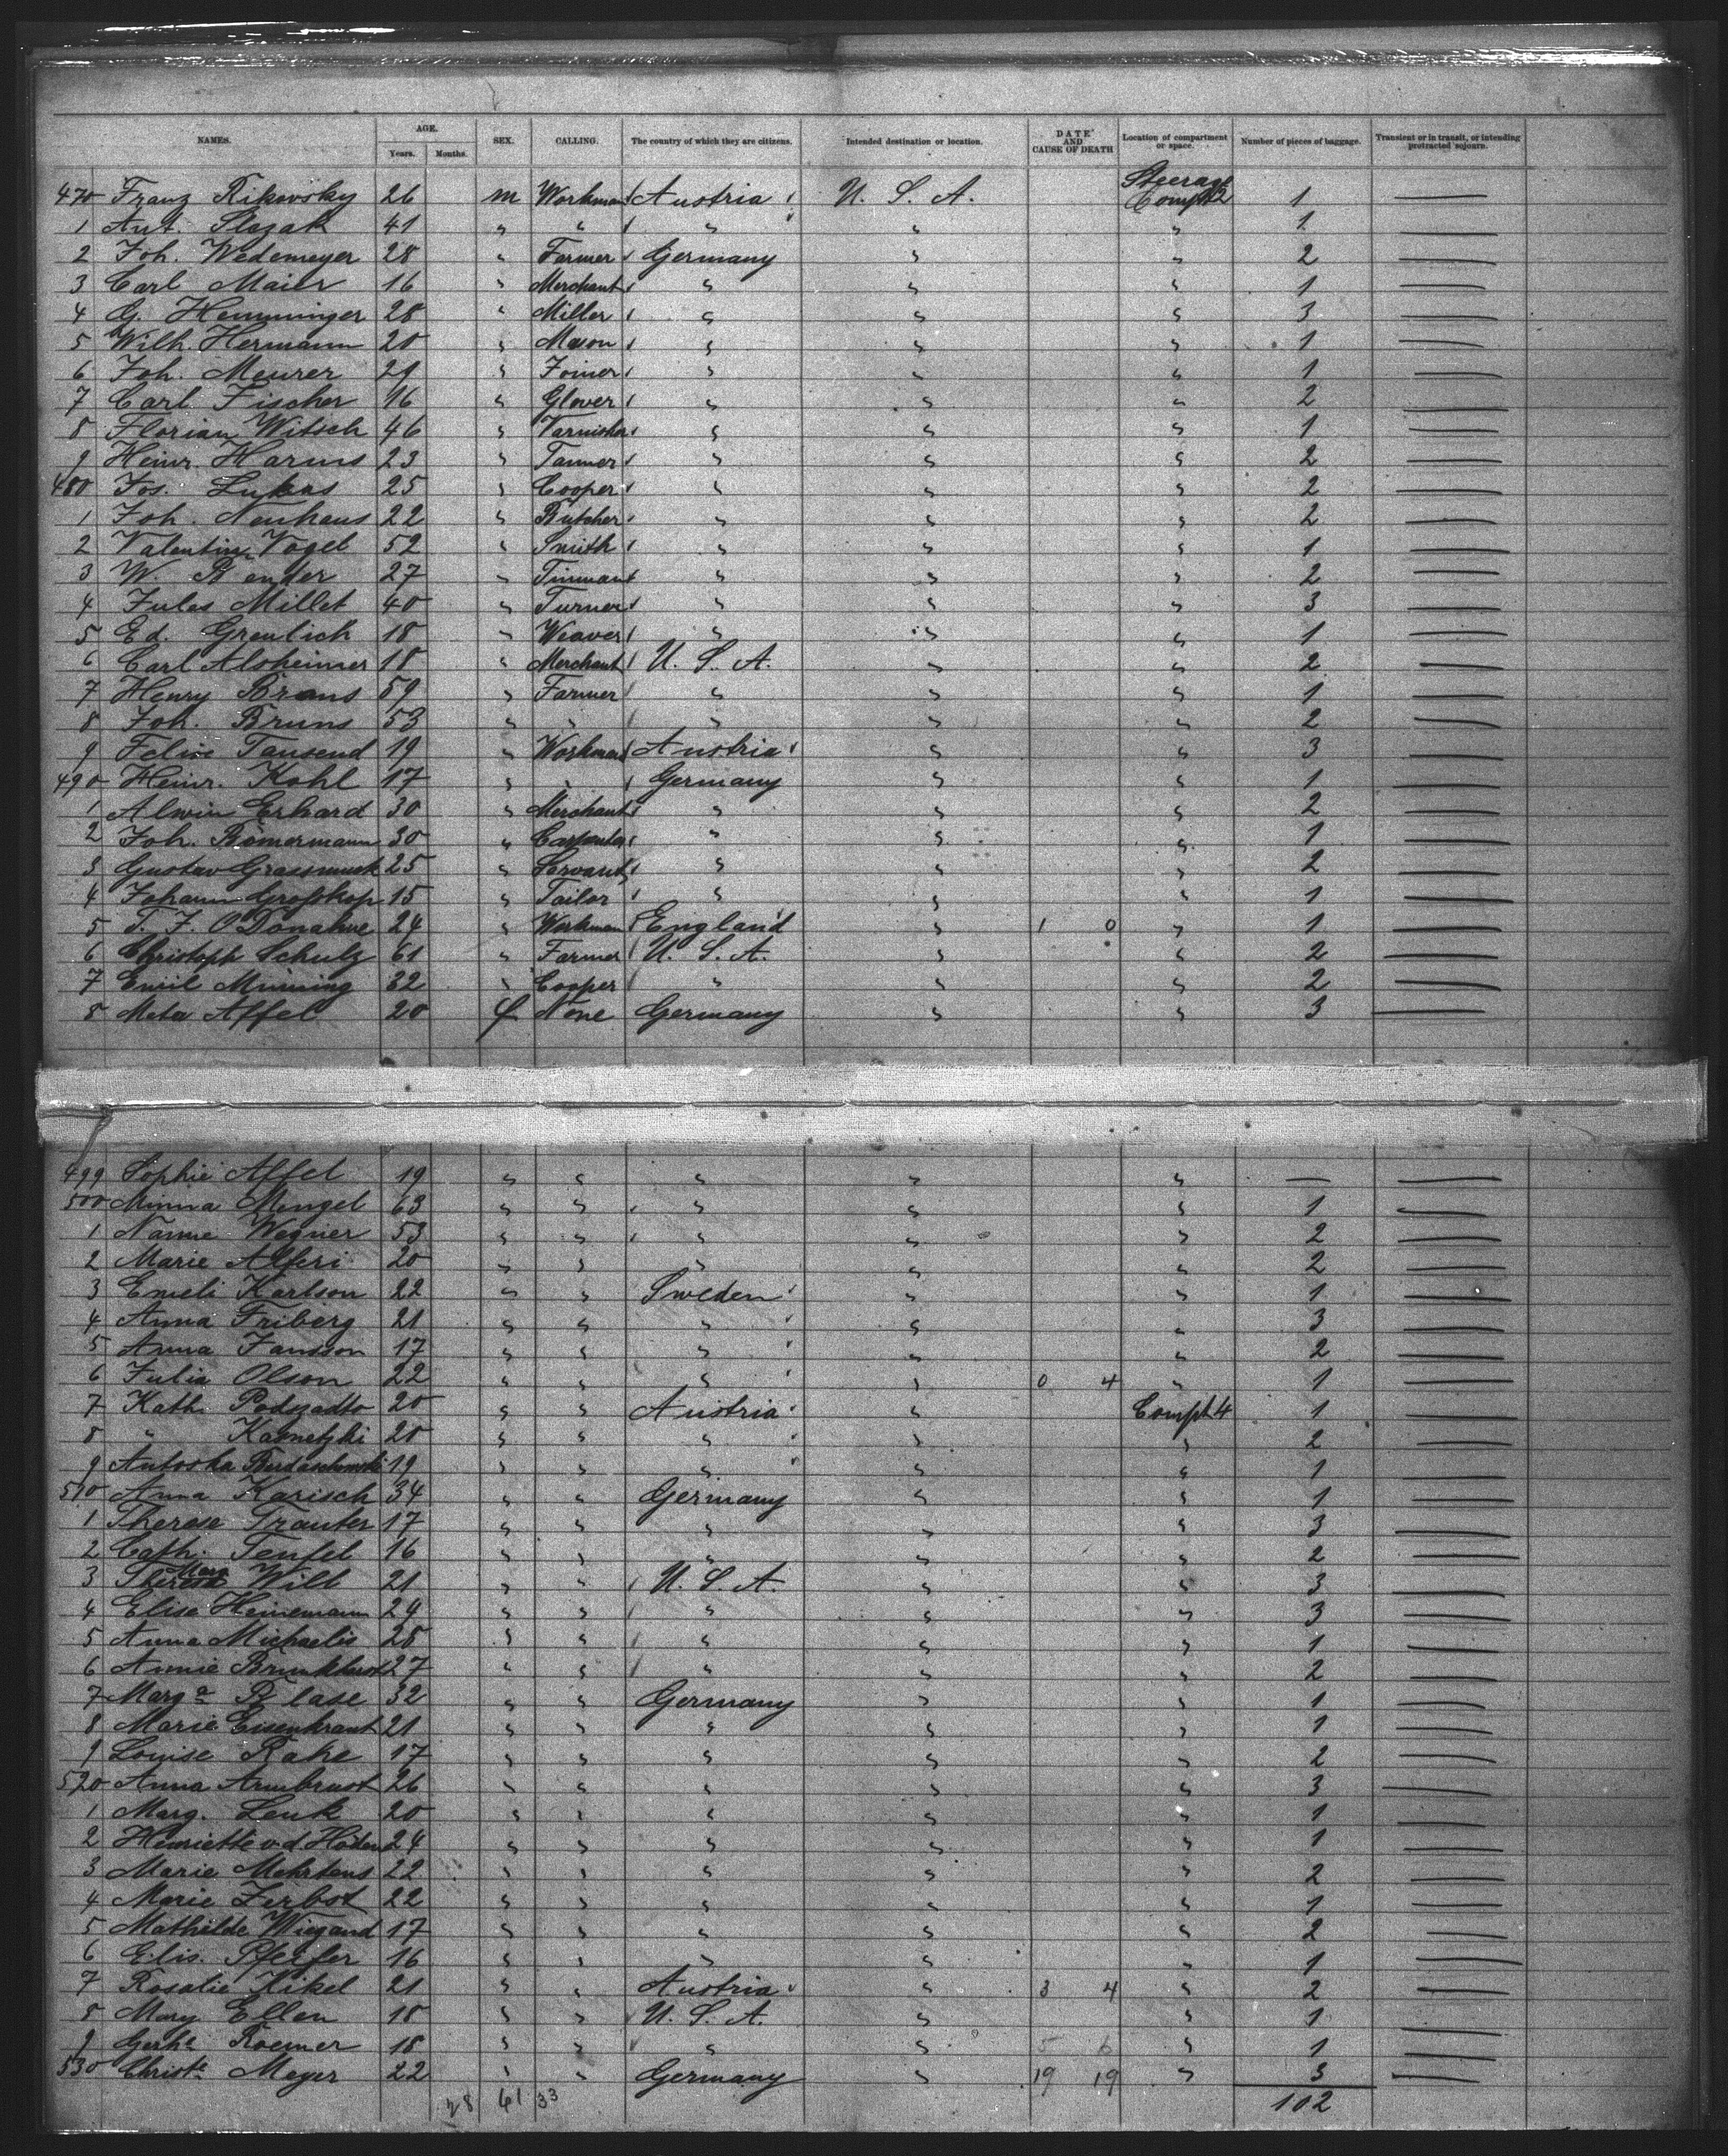 NAMES. AGE. Years. Months. SEX. CALLING. The country of which they are citizens. Intended destination or location. DATE AND CAUSE OF DEATH Location of compartment or space. Number of pieces of baggage. Transient or in transit, or intending protracted sojourn.
470 Franz Rikovsky 26 m Workman Austria U. S. A. Steerage Compt 2 1 —
1 Ant. Slozak 41 " " " " " 1 —
2 Joh. Wedemeyer 28 " Farmer Germany " " 2 —
3 Carl Maier 16 " Merchant " " " 1 —
4 G. Hemminger 28 " Miller " " " 3 —
5 Wilh. Hermann 20 " Mason " " " 1 —
6 Joh. Meurer 29 " Joiner " " " 1 —
7 Carl Fischer 16 " Glover " " " 2 —
8 Florian Witsch 46 " Varnisher " " " 1 —
9 Heinr. Harms 23 " Tanner " " " 2 —
480 Jos. Lukas 25 " Cooper " " " 2 —
1 Joh. Neuhaus 22 " Butcher " " " 2 —
2 Valentin Vogel 52 " Smith " " " 1 —
3 W. Bender 27 " Tinman " " " 2 —
4 Jules Millet 40 " Turner " " " 3 —
5 Ed. Greulich 18 " Weaver " " " 1 —
6 Carl Alsheimer 18 " Merchant U. S. A. " " 2 —
7 Henry Brans 59 " Farmer " " " 1 —
8 Joh. Bruns 53 " " " " " 2 —
9 Felix Tausend 19 " Workman Austria " " 3 —
490 Heinr. Kohl 17 " " Germany " " 1 —
1 Alwin Erhard 30 " Merchant " " " 2 —
2 Joh. Römermann 30 " Carpenter " " " 1 —
3 Gustav Grassmuck 25 " Servant " " " 2 —
4 Johann Grosskop 15 " Tailor " " " 1 —
5 T. F. O'Donahue 24 " Workman England " 1 0 " 1 —
6 Christoph Schulz 61 " Farmer U. S. A. " " 2 —
7 Emil Münning 32 " Cooper " " " 2 —
8 Meta Affel 20 f None Germany " " 3 —
499 Sophie Affel 19 " " " " " — —
500 Minna Mengel 63 " " " " " 1 —
1 Nanne Wegner 53 " " " " " 2 —
2 Marie Alferi 20 " " " " " 2 —
3 Emeli Karlson 22 " " Sweden " " 1 —
4 Anna Friberg 21 " " " " " 3 —
5 Anna Jansson 17 " " " " " 2 —
6 Julia Olson 22 " " " " 0 4 " 1 —
7 Kath. Podszadlo 20 " " Austria " Compt 4 1 —
8 " Kasnetzki 20 " " " " " 2 —
9 Antoska 19 " " " " " 1 —
510 Anna Karisch 34 " " Germany " " 1 —
1 Therese Trauter 17 " " " " " 3 —
2 Cath. Teufel 16 " " " " " 2 —
3 Mary Will 21 " " U. S. A. " " 3 —
4 Elise Heinemann 24 " " " " " 3 —
5 Anna Michaelis 28 " " " " " 1 —
6 Annie Brunkhorst 27 " " " " " 2 —
7 Marga Blase 32 " " Germany " " 1 —
8 Marie Eisenkraut 21 " " " " " 1 —
9 Louise Rake 17 " " " " " 2 —
520 Anna Armbrust 26 " " " " " 3 —
1 Marg. Lenk 20 " " " " " 1 —
2 Henriette v. d. Höden 24 " " " " " 1 —
3 Marie Mehrtens 22 " " " " " 2 —
4 Marie Zerbst 22 " " " " " 1 —
5 Mathilde Wiegand 17 " " " " " 2 —
6 Elis. Pfeifer 16 " " " " " 1 —
7 Rosalie Kikel 21 " " Austria " 3 4 " 2 —
8 Mary Ellen 18 " " U. S. A. " " 1 —
9 Gerh. Roemer 18 " " " " 5 6 " 1 —
530 Christe Meyer 22 " " Germany " 19 19 " 3 —
28 61 33 102